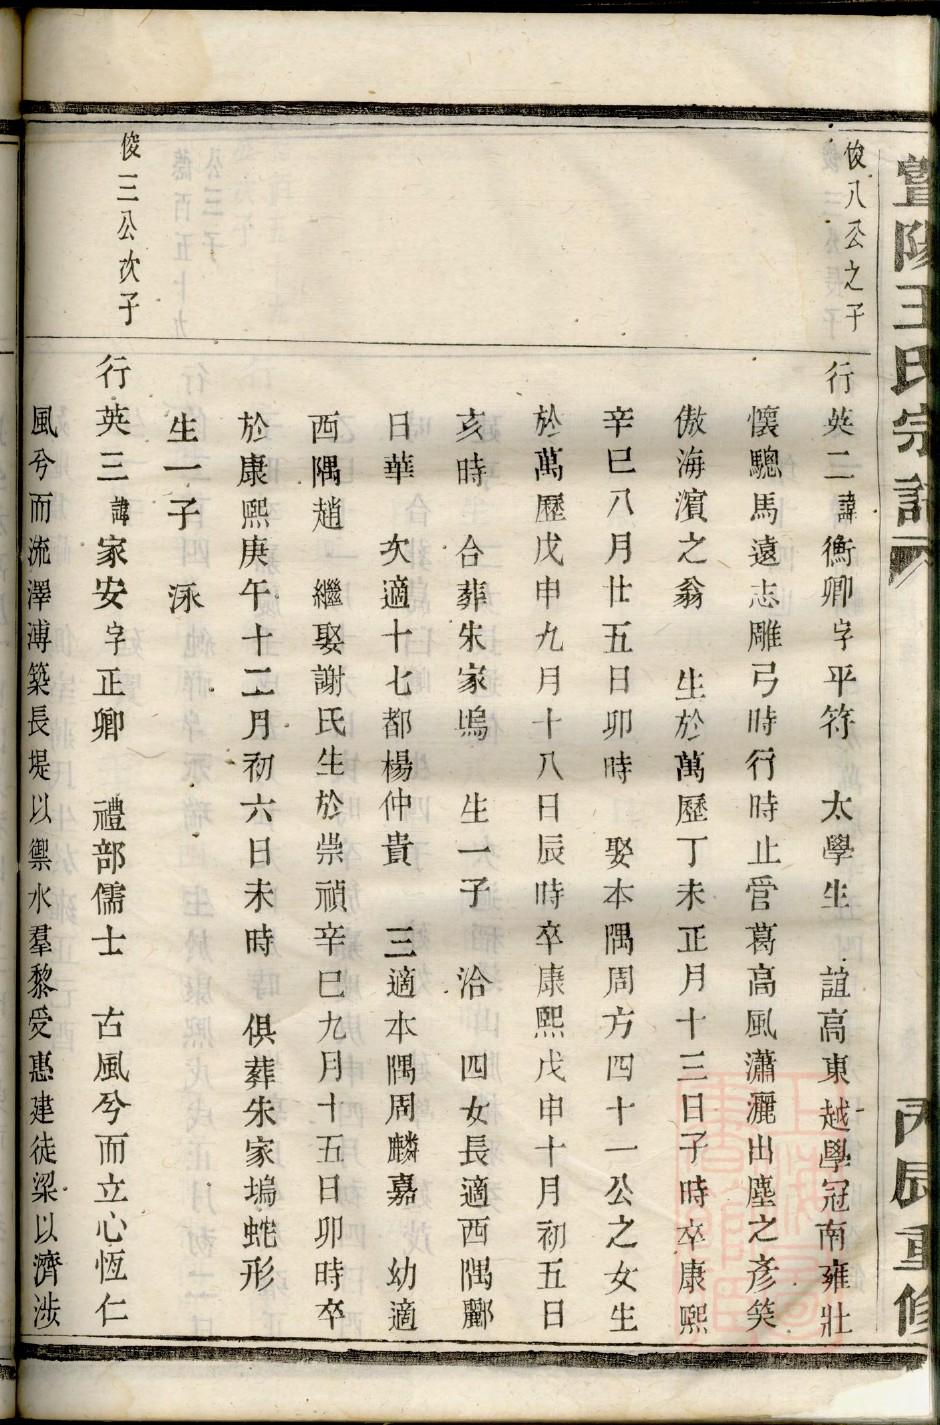 暨陽王氏宗譜
丙辰重修
俊八公之子
行英二諱衡卿字平符　太學生　誼高東越學冠南雍壯
懷驄馬遠志雕弓時行時止管葛高風瀟灑出塵之彥笑
傲海濱之翁　生於萬歷丁未正月十三日子時卒康熙
辛巳八月廿五日卯時　娶本隅周方四十一公之女生
於萬歷戊申九月十八日辰時卒康熙戊申十月初五日
亥時　合葬朱家塢　生一子　洽　四女長適西隅酈
日華　次適十七都楊仲貴　三適本隅周麟嘉　幼適
西隅趙　繼娶謝氏生於崇禎辛巳九月十五日卯時卒
於康熙庚午十二月初六日未時　俱葬朱家塢蛇形
生一子　泳
俊三公次子
行英三諱家安字正卿　禮部儒士　古風兮而立心恆仁
風兮而流澤溥築長堤以禦水羣黎受惠建徒梁以濟涉